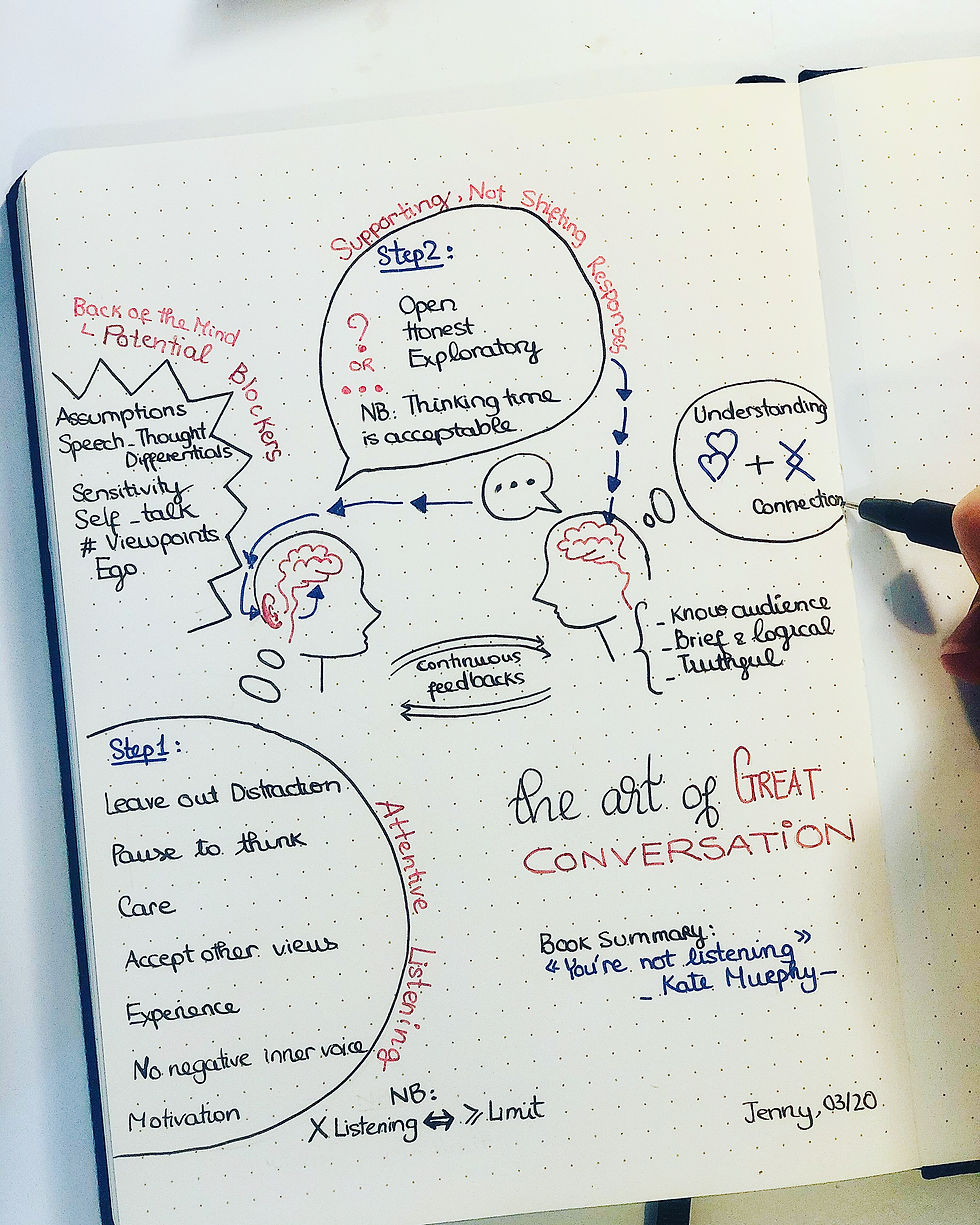 Supporting, Not Shifting Responses
Step2:
?
OR
...
Open
Honest
Exploratory
NB: Thinking time
is acceptable
Back of the Mind
Potential
Blockers
Assumptions
Speech-Thought
Differentials
Sensitivity
Self-talk
# Viewpoints
Ego
Understanding
+
Connection
...
continuous
feedbacks
- Know audience
- Brief & logical
- Truthful
Step1:
Leave out Distraction
Pause to think
Care
Accept other views
Experience
No negative inner voice
Motivation
Attentive Listening
the art of GREAT
CONVERSATION
Book Summary:
"You're not listening"
- Kate Murphy -
NB:
X Listening ⇔ ≥ Limit
Jenny, 03/20